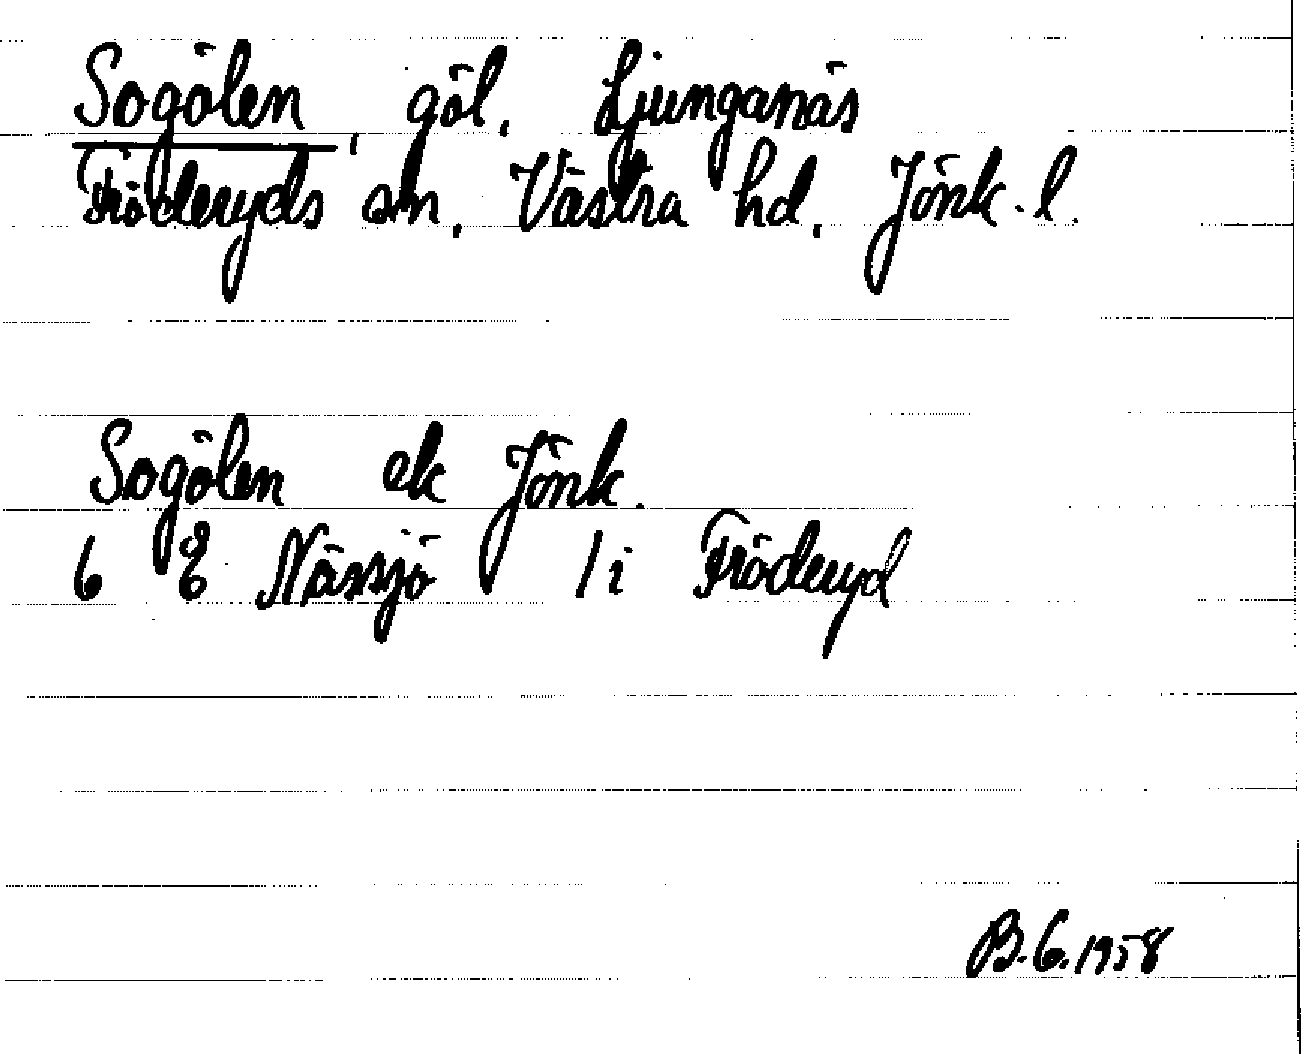 Sogölen, göl. Ljunganäs
Fröderyds sn, Västra hd, Jönk. l.
Sogölen ek Jönk.
6 E Nässjö 1 i Fröderyd
B.G. 1958